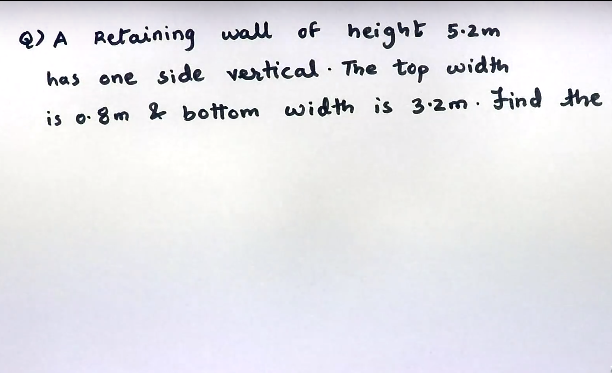 Q) A Retaining wall of height 5.2m
has one side vertical. The top width
is 0.8m & bottom width is 3.2m. Find the